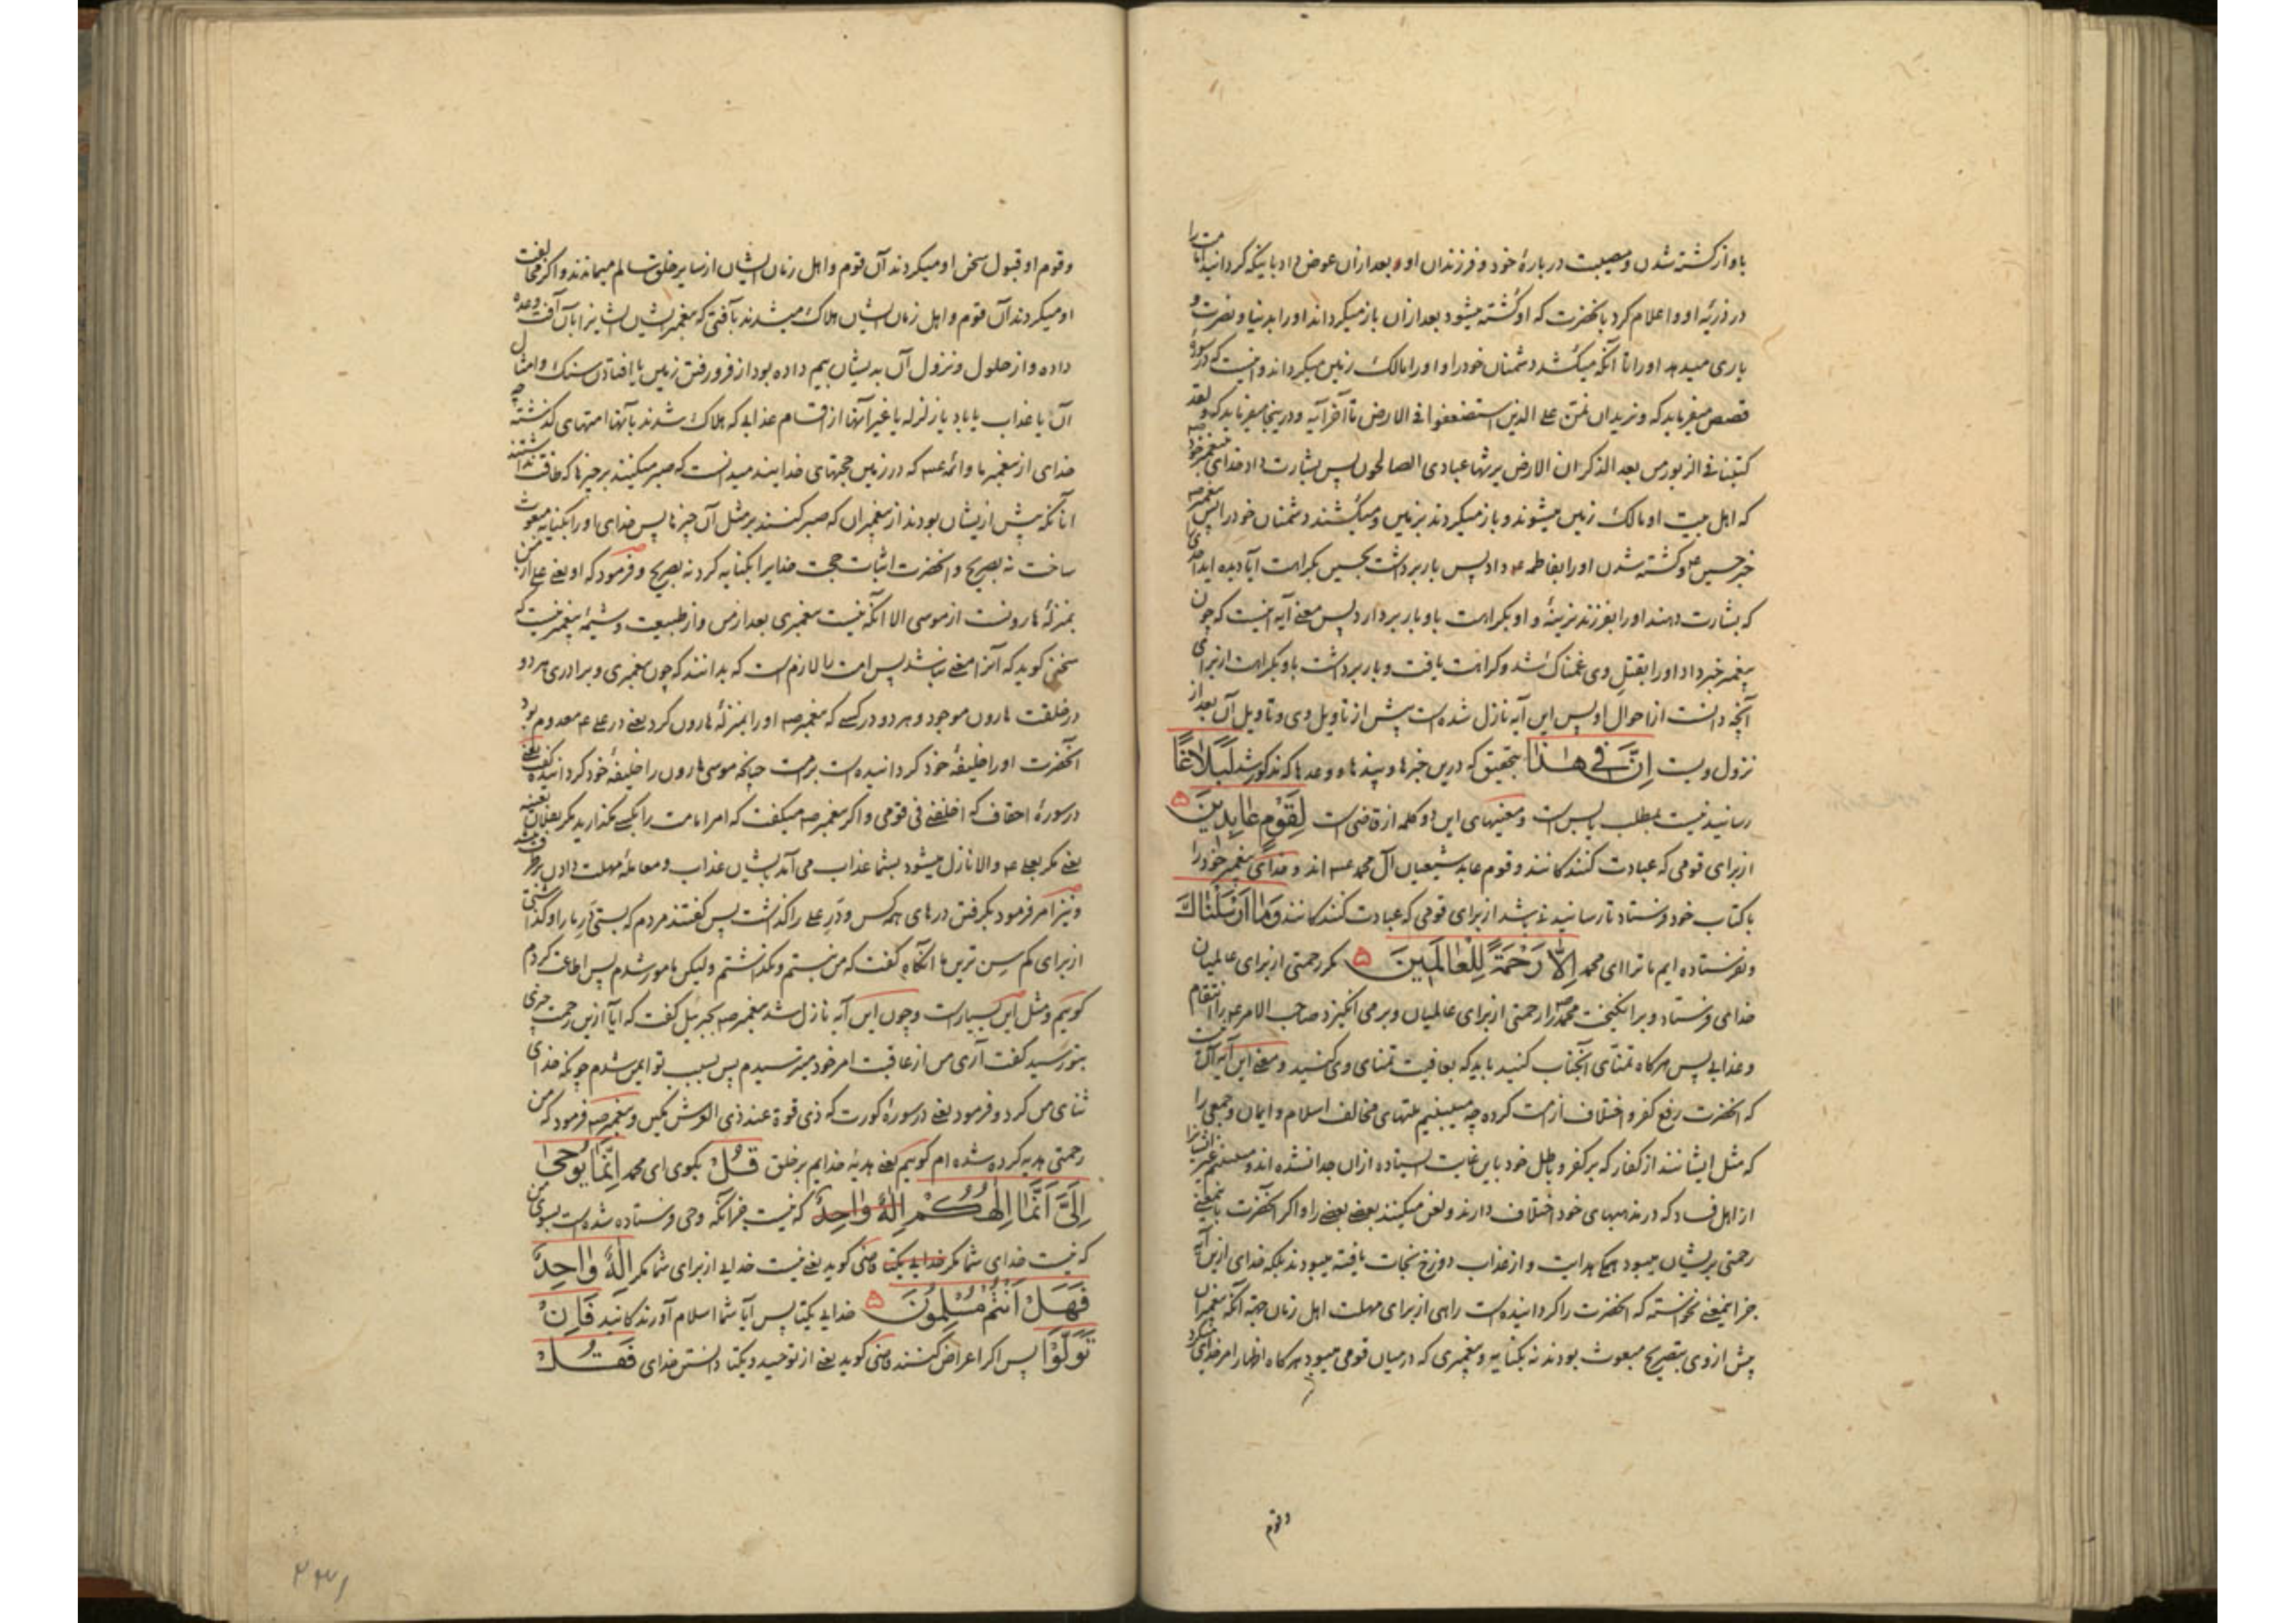 باو از کشته شدن و مصیبت در بارهٔ خود و فرزندان او و بعد ازان عوض داد باینکه گردانید امامت را
در ذریّه او و اعلام کرد بانحضرت که او کُشته میشود بعد ازان باز میگرداند او را بدنیا و نصرت و
یاری میدهد او را تا آنکه میکُشد دشمنان خود را و او را مالک زمین میگرداند و اینست که در سورهٔ
قصص میفرماید که و نرید ان نمنّ علی الذین استضعفوا فی الارض تا آخر آیه و در ینجا میفرماید که و لقد
کتبنا فی الزبور من بعد الذکر ان الارض یرثها عبادی الصالحون پس بشارت داد خدای پیغمبر خود
که اهل بیت او مالک زمین میشوند و باز میگردند بزمین و میکُشند دشمنان خود را پس پیغمبر صه
خبر حسین و کشته شدن او را بفاطمه عه داد پس بار برداشت بحسین بکراهت آیا دیده اید احدی
که بشارت دهند او را بفرزند نرینهٔ و او بکراهت باو بار بردارد پس معنی آیه اینست که چون
پیغمبر خبر داد او را بقتل وی غمناک شد و کراهت یافت و بار برداشت باو بکراهت از برای
آنچه دانست از احوال او پس این آیه نازل شده است پیش از تاویل وی و تاویل آن بعد از
نزول ویست اِنَّ فی هٰذا بتحقیق که درین خبرها و پندها و وعدها که مذکور شد لَبَلاغًا
رسانیدنیست بمطلب یا بس است و معنیهای این دو کلمه از قاضی است لِقَوْمٍ عٰابِدینَ ۵
از برای قومی که عبادت کنندگانند و قوم عابد شیعیان آل محمد عه اند و خدای پیغمبر خود را
با کتاب خود فرستاد تا رسانیدنی باشد از برای قومی که عبادت کنندگانند وَمٰا اَرْسَلْنٰاكَ
و نفرستاده ایم ما ترا ای محمد اِلّا رَحْمَةً لِلْعٰالَمینَ ۵ مگر رحمتی از برای عالمیان
خدای فرستاد و برانگیخت محمد را رحمتی از برای عالمیان و بر می انگیزد صاحب الامر عه را بانتقام
و عذابی پس هرگاه تمنّای آنجناب کنید باید که بعافیت تمنای وی کنید و معنی این آیه آنست
که انحضرت رفع کفر و اختلاف از امت کرده چه میبینیم ملتهای مخالف اسلام و ایمان و جمعی را
که مثل ایشانند از کفار که بر کفر و باطل خود باین غایت ایستاده ازان جدا نشده اند و میبینیم غیر ایشانرا
از اهل فساد که در مذهبهای خود اختلاف دارند و لعن میکنند بعضی بعضی را و اگر انحضرت باینمعنی
رحمتی بر یشان میبود همگی هدایت و از عذاب دوزخ نجات یافته میبودند بلکه خدای ازین آیه
جز اینمعنی نخواسته که انحضرت را گردانیده است راهی از برای مهلت اهل زمان چه آنکه پیغمبران
پیش از وی بتصریح مبعوث بودند نه بکنایه و پیغمبری که در میان قومی میبود هرگاه اظهار امر خدای میکرد
وقوم
و قوم او قبول سخن او میکردند آن قوم و اهل زمان ایشان از سایر خلق سالم میماندند و اگر مخالفت
او میکردند آن قوم و اهل زمان ایشان هلاک میشدند بآفتی که پیغمبر ایشان ایشانرا بآن آفت وعده
داده و از حلول و نزول آن بدیشان بیم داده بود از فرو رفتن زمین یا افتادن سنک و امثال
آن یا عذاب یا باد یا زلزله یا غیر آنها از اقسام عذابی که هلاک شدند بآنها امتهای گذشته چه
خدای از پیغمبر ما و ائمه عه که در زمین حجتهای خدایند میدانست که صبر میکنند بر چیزها که طاقت نداشتند
انانکه پیش ازیشان بودند از پیغمبران که صبر کنند بر مثل آن چیزها پس خدای او را بکنایه مبعوث
ساخت نه بصریح و انحضرت اثبات حجت خدایرا بکنایه کرد نه بصریح و فرمود که او یعنی علی از من
بمنزلهٔ هارونست از موسی الا آنکه نیست پیغمبری بعد از من و از طبیعت و شیمهٔ پیغمبر نیست که
سخنی گوید که آنرا معنی نباشد پس امت را لازم است که بدانند که چون پیغمبری و برادری هر دو
در خلقت هارون موجود و هر دو در کسی که پیغمبر صه او را بمنزلهٔ هارون کرد یعنی در علی عه معدوم بود
انحضرت او را خلیفهٔ خود گردانیده است بر امت چنانچه موسی هارون را خلیفهٔ خود گردانیده گفت یعنی
در سورهٔ احقاف که اخلفنی فی قومی و اگر پیغمبر صه میگفت که امر امامت را بکسی مگذارید مگر بفلان بعینه
یعنی مگر بعلی عه و الا نازل میشود بشما عذاب می آمد بدیشان عذاب و معاملهٔ مهلت دادن برطرف میشد
و نیز امر فرمود بگرفتن درهای همه کس و درِ علی را گذاشت پس گفتند مردم که بستی درِ ما را و گذاشتی
از برای کم سِن ترین ما آنگاه گفت که من نبستم و نگذاشتم ولیکن مامور شدم پس اطاعت کردم
گوییم و مثل این بسیار است و چون این آیه نازل شد پیغمبر صه بجبرئیل گفت که آیا ازین رحمت چیزی
بتو رسید گفت آری من از عاقبت امر خود میترسیدم پس بسبب تو ایمن شدم چونکه خدای
ثنای من کرد و فرمود یعنی در سورهٔ کورت که ذی قوة عند ذی العرش مکین و پیغمبر صه فرمود که من
رحمتی هدیه کرده شده ام گوییم یعنی هدیهٔ خدایم بر خلق قُلْ بگوی ای محمد اِنَّمٰا یُوحیٰ
اِلَیَّ اَنَّمٰا اِلٰهُکُمْ اِلٰهٌ وٰاحِدٌ که نیست جز آنکه وحی فرستاده شده است بسوی من
که نیست خدای شما مگر خدایی یکتا قاضی گوید یعنی نیست خدایی از برای شما مگر اِلٰهٌ وٰاحِدٌ
فَهَلْ اَنْتُمْ مُسْلِمُونَ ۵ خدایی یکتا پس آیا شما اسلام آورندگانید فَاِنْ
تَوَلَّوْا پس اگر اعراض کنند قاضی گوید یعنی از توحید و یکتا دانستن خدای فَقُلْ